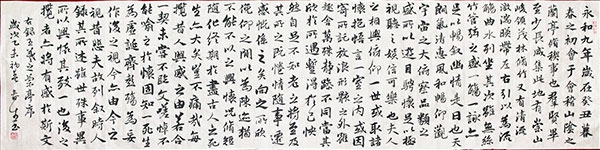 永和九年歲在癸丑暮
春之初會于會稽山陰之
蘭亭脩稧事也群賢畢
至少長咸集此地有崇山
峻領茂林脩竹又有清流
激湍暎帶左右引以為流
觴曲水列坐其次雖無絲
竹管絃之盛一觴一詠亦足
以暢叙幽情是日也天
朗氣清惠風和暢仰觀
宇宙之大俯察品類之
盛所以遊目騁懷足以極
視聽之娛信可樂也夫人
之相與俯仰一世或取諸
懷抱悟言一室之內或因
寄所託放浪形骸之外雖
趣舍萬殊靜躁不同當其
欣於所遇暫得於己怏
然自足不知老之將至及
其所之既惓情隨事遷
感慨係之矣向之所欣
俛仰之間以為陳迹猶
不能不以之興懷況脩短
隨化終期於盡古人云死
生亦大矣豈不痛哉每
攬昔人興感之由若合
一契未嘗不臨文嗟悼不
能喻之於懷固知一死生
為虛誕齊彭殤為妄
作後之視今亦由今之
視昔悲夫故列叙時人
錄其所述雖世殊事異
所以興懷其致一也後之
攬者亦將有感於斯文
右錄王羲之蘭亭序
歲次乙未